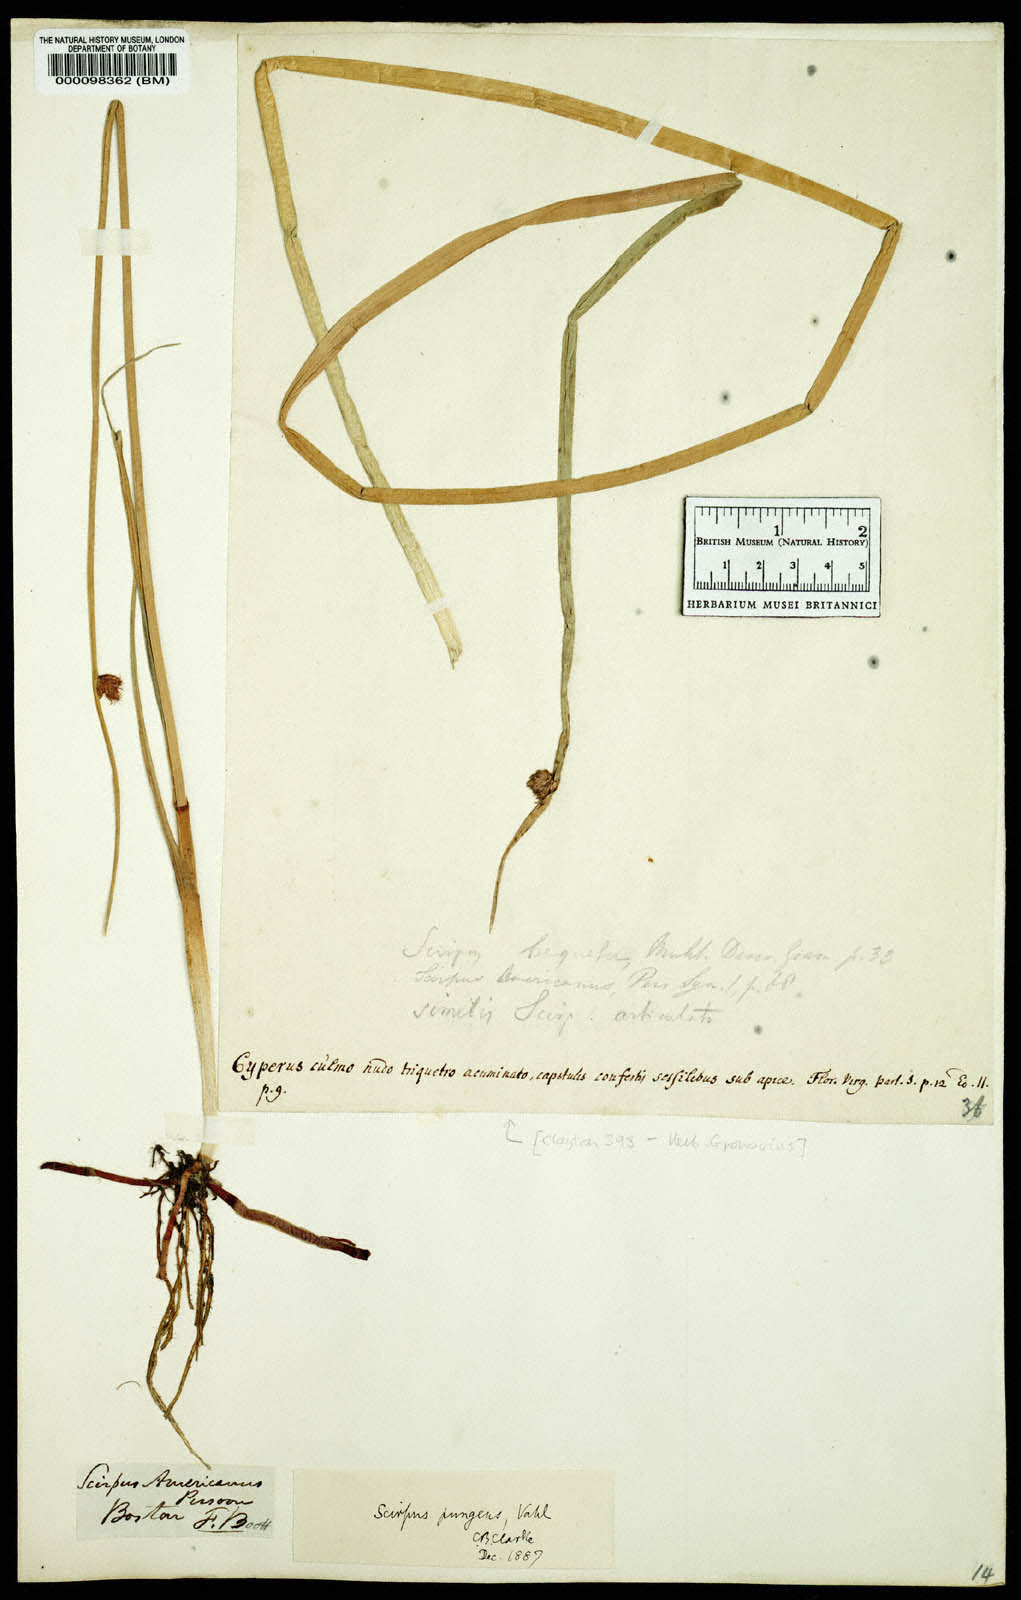 THE NATURAL HISTORY MUSEUM, LONDON
DEPARTMENT OF BOTANY
000098362 (BM)
1 2
BRITISH MUSEUM (NATURAL HISTORY)
1 2 3 4 5
HERBARIUM MUSEI BRITANNICI
Scirpus triqueter, Muhl. Descr. Gram p. 33
Scirpus Americanus, Pers Syn. 1, p. 68
similis Scirp. articulato
Cyperus culmo nudo triquetro acuminato, capitulis confertis sessilibus sub apice. Flor. Virg. part. 3. p. 12 Ed. II.
p. 9.
36
↑ [Clayton 393 - Herb. Gronovius]
Scirpus Americanus
Persoon
Boston F. Boott
Scirpus pungens, Vahl
C.B. Clarke
Dec. 1887
14